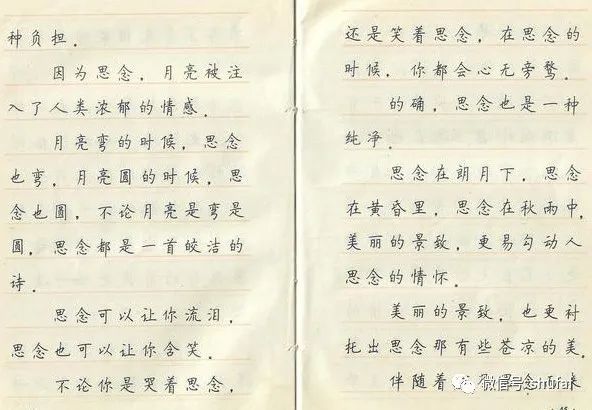 种负担.
因为思念, 月亮被注
入了人类浓郁的情感.
月亮弯的时候, 思念
也弯, 月亮圆的时候, 思
念也圆, 不论月亮是弯是
圆, 思念都是一首皎洁的
诗.
思念可以让你流泪,
思念也可以让你含笑.
不论你是哭着思念,
还是笑着思念, 在思念的
时候, 你都会心无旁鹜.
的确, 思念也是一种
纯净.
思念在朗月下, 思念
在黄昏里, 思念在秋雨中,
美丽的景致, 更易勾动人
思念的情怀.
美丽的景致, 也更衬
托出思念那有些苍凉的美.
伴随着
微信号: shufar